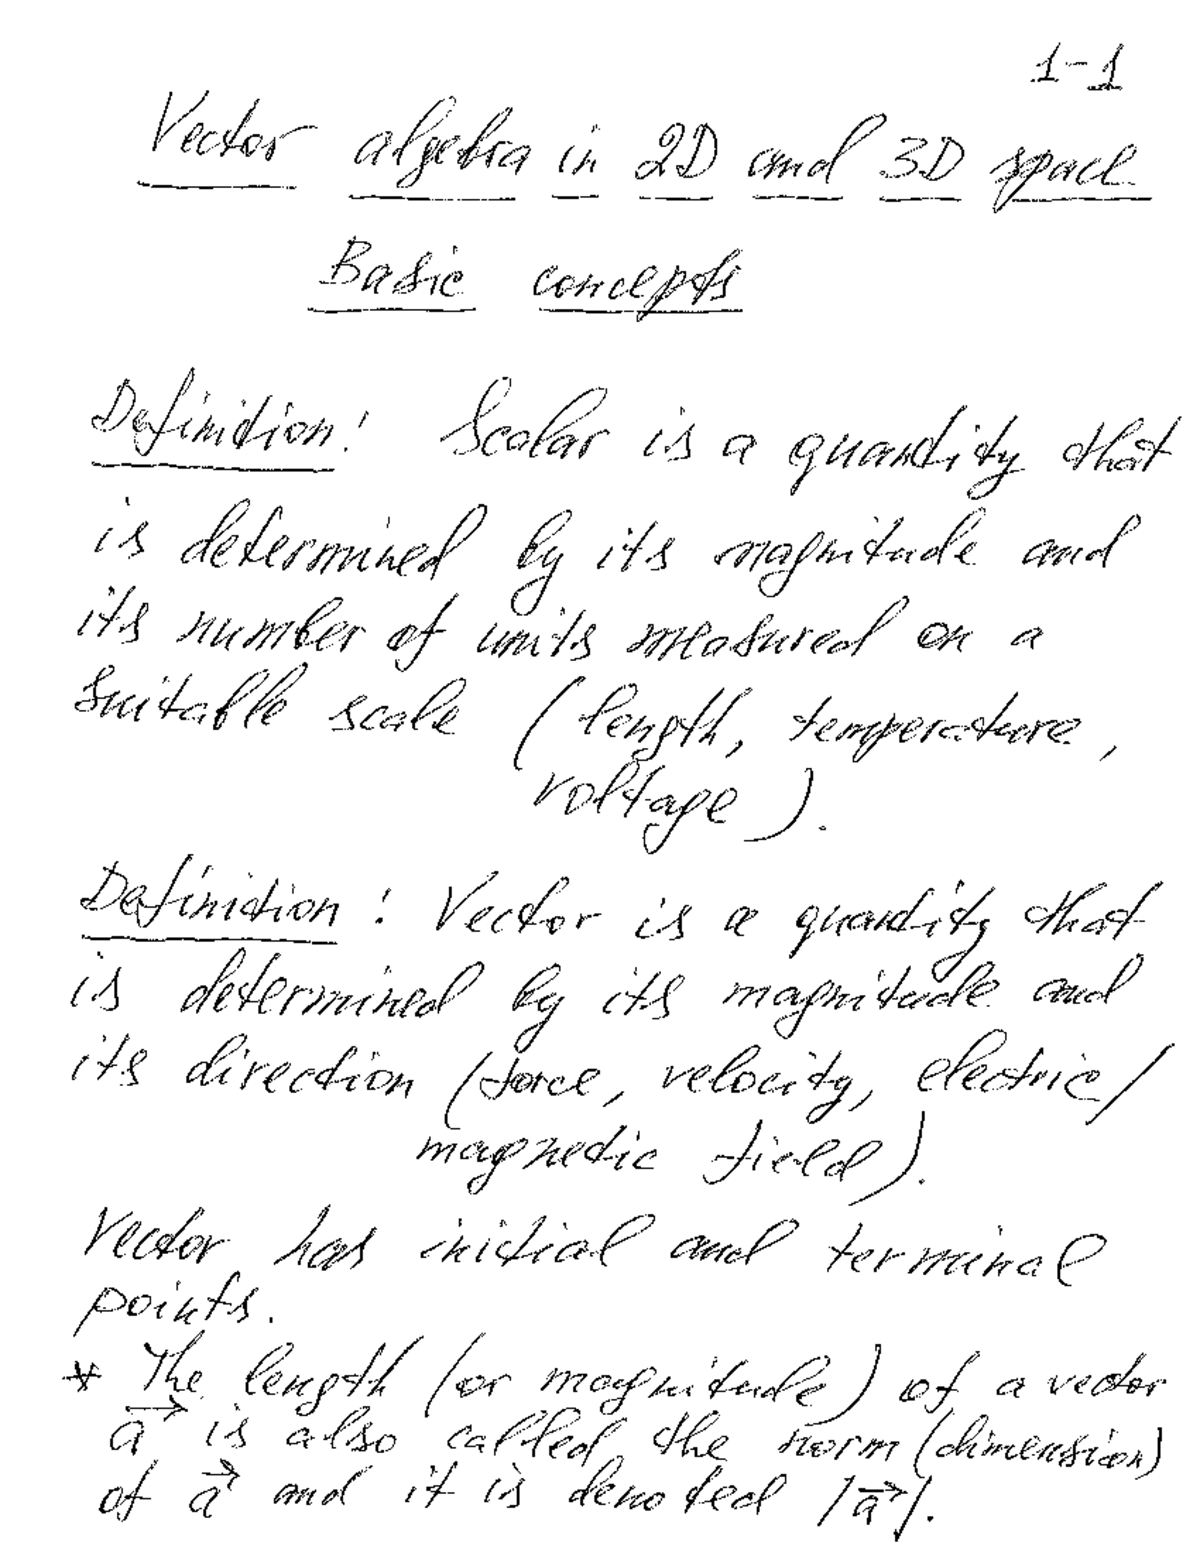 1-1
Vector algebra in 2D and 3D space
Basic concepts
Definition: Scalar is a quantity that
is determined by its magnitude and
its number of units measured on a
suitable scale (length, temperature,
voltage).
Definition: Vector is a quantity that
is determined by its magnitude and
its direction (force, velocity, electric/
magnetic field).
Vector has initial and terminal
points.
* The length (or magnitude) of a vector
$\vec{a}$ is also called the norm (dimension)
of $\vec{a}$ and it is denoted |$\vec{a}$|.